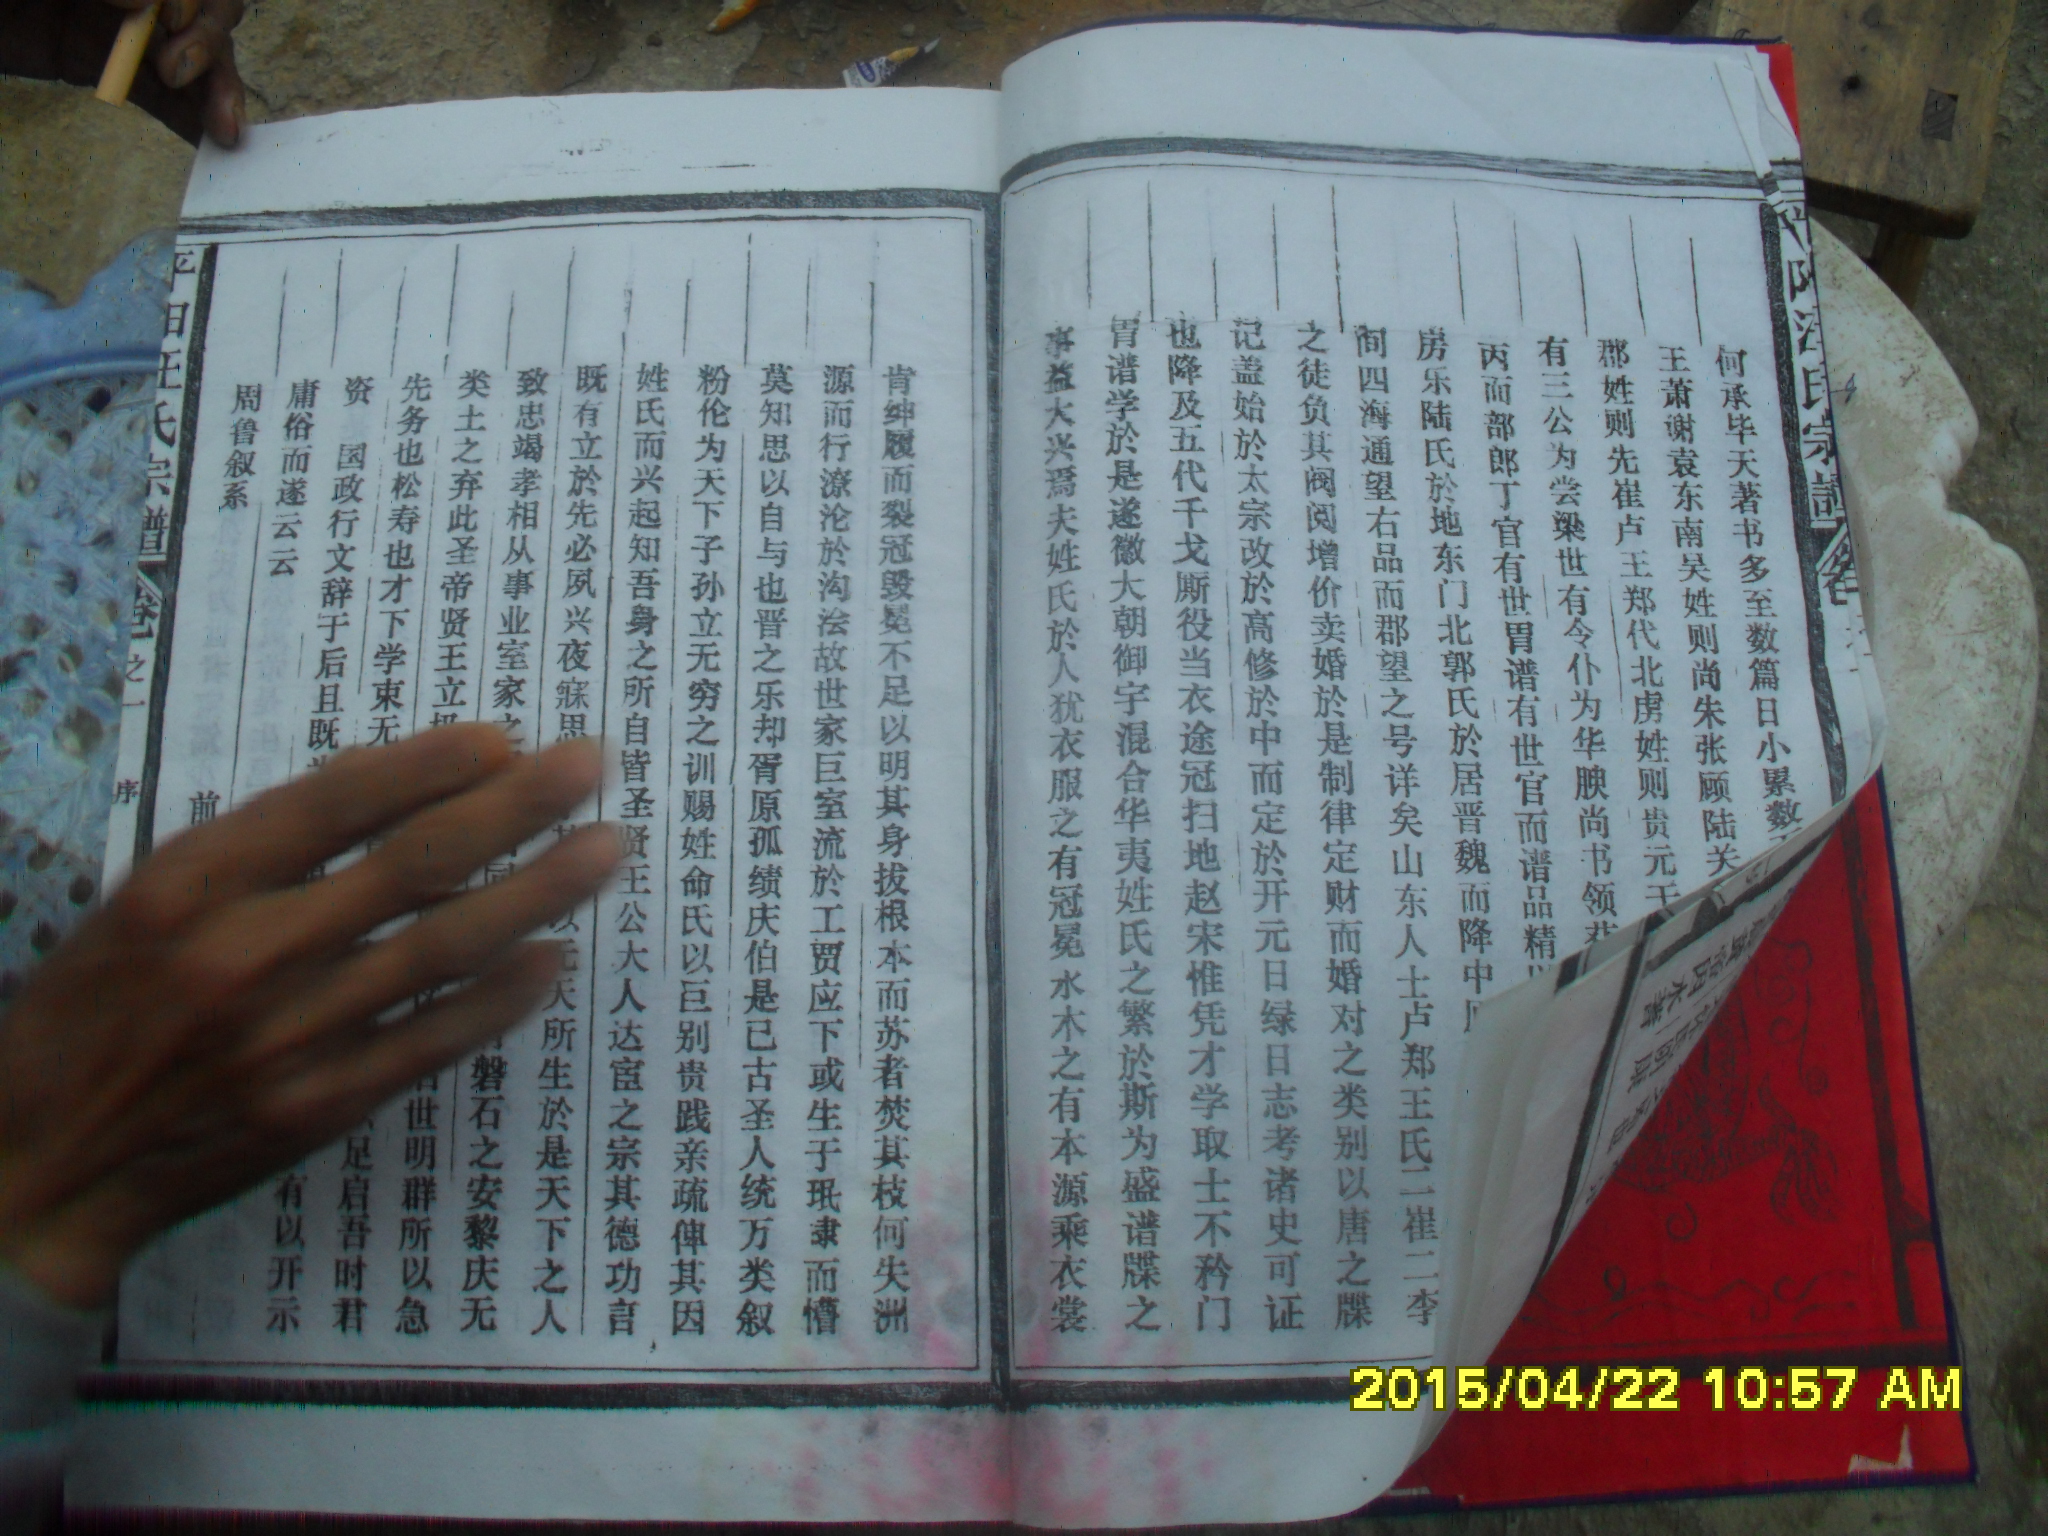 何承毕天著书多至数篇日小累数
王萧谢袁东南吴姓则尚朱张顾陆关
郡姓则先崔卢王郑代北虏姓则贵元于
有三公为尝梁世有令仆为华腴尚书领
丙而部郎丁官有世胄谱有世官而谱品精
房乐陆氏於地东门北郭氏於居晋魏而降中
间四海通望右品而郡望之号详矣山东人士卢郑王氏二崔二李
之徒负其阀阅增价卖婚於是制律定财而婚对之类别以唐之牒
记盖始於太宗改於高修於中而定於开元日绿日志考诸史可证
也降及五代千戈厮役当衣途冠扫地赵宋惟凭才学取士不矜门
胄谱学於是遂微大朝御宇混合华夷姓氏之繁於斯为盛谱牒之
事益大兴焉夫姓氏於人犹衣服之有冠冕水木之有本源乘衣裳
肯绅履而裂冠毁冕不足以明其身拔根本而苏者焚其枝何失洲
源而行潦沦於沟浍故世家巨室流於工贾应下或生于珉隶而懵
莫知思以自与也晋之乐却胥原孤绩庆伯是已古圣人统万类叙
粉伦为天下子孙立无穷之训赐姓命氏以巨别贵践亲疏俾其因
姓氏而兴起知吾身之所自皆圣贤王公大人达宦之宗其德功言
既有立於先必夙兴夜寐思 以无天所生於是天下之人
致忠竭孝相从事业室家之 磐石之安黎庆无
类土之弃此圣帝贤王立 世明群所以急
先务也松寿也才下学束无 足启吾时君
资 国政行文辞于后且既 有以开示
庸俗而遂云云
周鲁叙系
前
氏宗谱
卷之一
序
氏宗谱
2015/04/22 10:57 AM